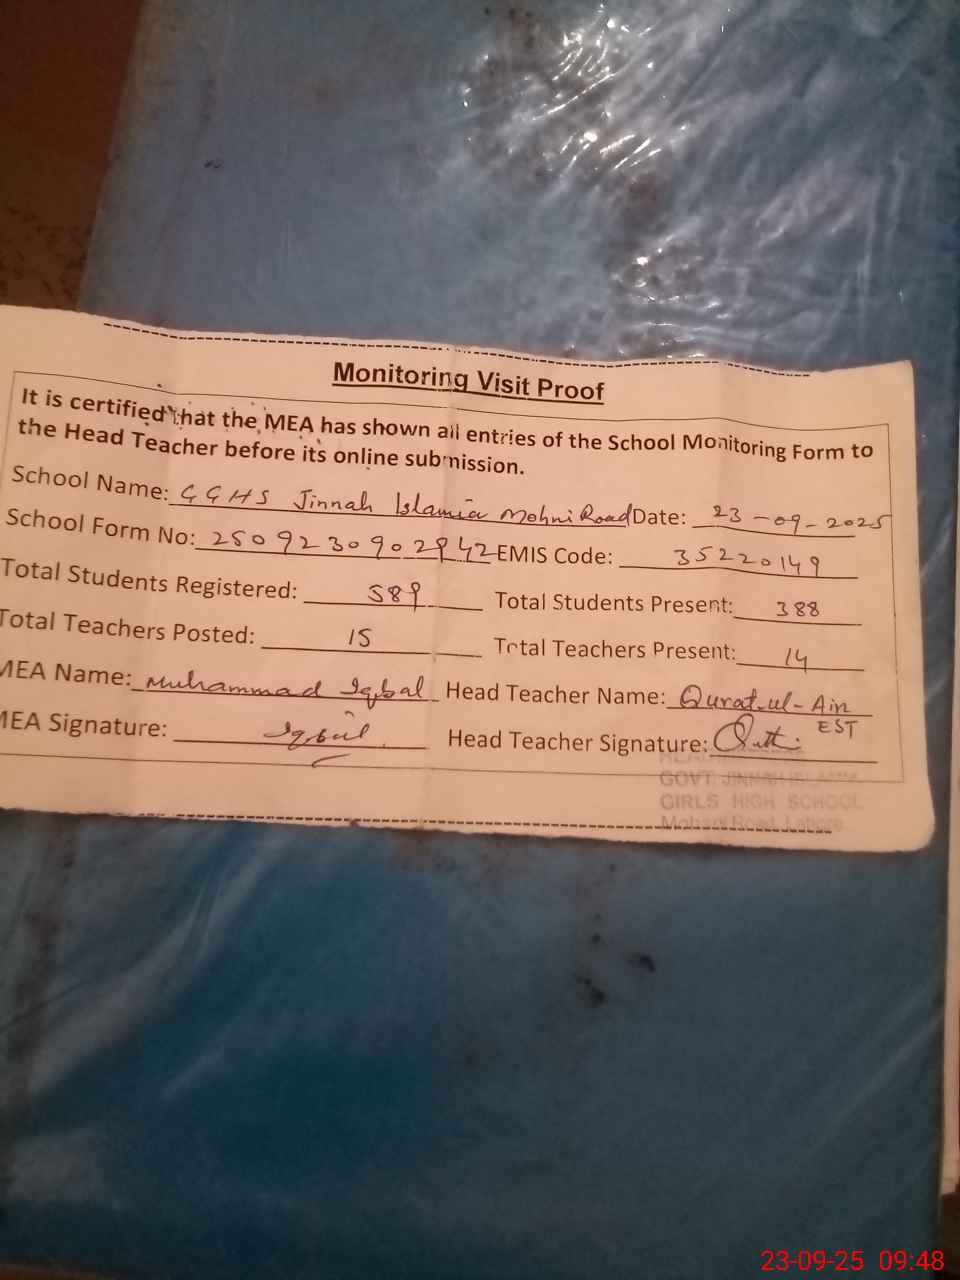 Monitoring Visit Proof
It is certified that the MEA has shown all entries of the School Monitoring Form to
the Head Teacher before its online submission.
School Name: GGHS Jinnah Islamia Mohni Road Date: 23-09-2025
School Form No: 2509230902942 EMIS Code: 35220149
Total Students Registered: 589 Total Students Present: 388
Total Teachers Posted: 15 Total Teachers Present: 14
MEA Name: Muhammad Iqbal Head Teacher Name: Qurat-ul-Ain
EST
MEA Signature: Iqbal Head Teacher Signature:
GOVT. JINNAH ISLAMIA
GIRLS HIGH SCHOOL
Mohani Road, Lahore
23-09-25 09:48